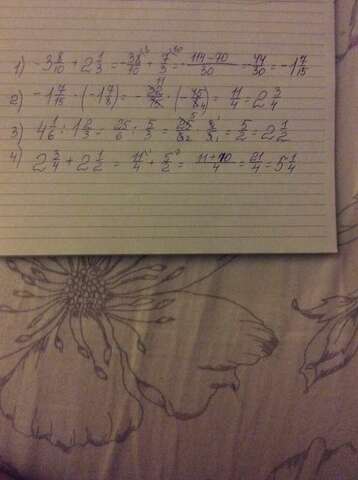 1) -3 8/10 + 2 1/3 = -38/10 + 7/3 = -114-70/30 = -44/30 = -1 7/15
2) -1 7/15 · (-1 7/8) = -22/15 · (-15/8) = 11/4 = 2 3/4
3) 4 1/6 : 1 2/3 = 25/6 : 5/3 = 25/6 · 3/5 = 5/2 = 2 1/2
4) 2 3/4 + 2 1/2 = 11/4 + 5/2 = 11+10/4 = 21/4 = 5 1/4